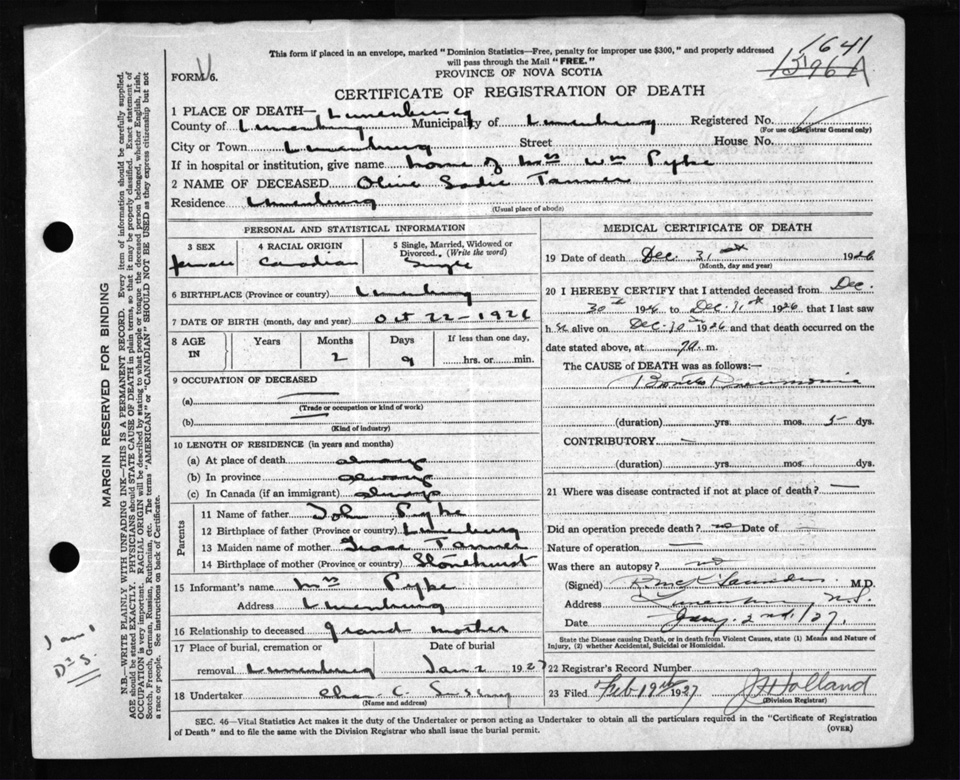 This form if placed in an envelope, marked "Dominion Statistics—Free, penalty for improper use $300," and properly addressed
will pass through the Mail "FREE."
1641
1596A
FORM V6.
PROVINCE OF NOVA SCOTIA
CERTIFICATE OF REGISTRATION OF DEATH
1 PLACE OF DEATH— Lunenburg
County of Lunenburg Municipality of Lunenburg Registered No.
(For use of Registrar General only)
City or Town Lunenburg Street House No.
If in hospital or institution, give name home of Mrs Wm Pyke
2 NAME OF DECEASED Olive Sadie Tanner
Residence Lunenburg
(Usual place of abode)
PERSONAL AND STATISTICAL INFORMATION
3 SEX 4 RACIAL ORIGIN 5 Single, Married, Widowed or
Divorced. (Write the word)
female Canadian Single
6 BIRTHPLACE (Province or country) Lunenburg
7 DATE OF BIRTH (month, day and year) Oct 22-1926
8 AGE IN Years Months Days If less than one day,
2 9 hrs. or min.
9 OCCUPATION OF DECEASED
(a)
(Trade or occupation or kind of work)
(b)
(Kind of industry)
10 LENGTH OF RESIDENCE (in years and months)
(a) At place of death always
(b) In province always
(c) In Canada (if an immigrant) always
Parents
11 Name of father John Pyke
12 Birthplace of father (Province or country) Lunenburg
13 Maiden name of mother Grace Tanner
14 Birthplace of mother (Province or country) Stonehurst
15 Informant's name Mrs Pyke
Address Lunenburg
16 Relationship to deceased grand mother
17 Place of burial, cremation or Date of burial
removal Lunenburg Jan 2 1927
18 Undertaker Chas. C.
(Name and address)
MEDICAL CERTIFICATE OF DEATH
19 Date of death Dec. 31st 1926
(Month, day and year)
20 I HEREBY CERTIFY that I attended deceased from Dec.
30th 1926 to Dec. 1926 that I last saw
h er alive on Dec. 1926 and that death occurred on
date stated above, at 7a. m.
The CAUSE OF DEATH was as follows:—
Broncho Pneumonia
(duration) yrs. mos. 5 dys.
CONTRIBUTORY —
(duration) yrs. mos. dys.
21 Where was disease contracted if not at place of death? —
Did an operation precede death? no Date of —
Nature of operation —
Was there an autopsy? no
(Signed) M.D.
Address Lunenburg N.S.
Date Jany. 2nd /27.
State the Disease causing Death, or in death from Violent Causes, state (1) Means and Nature of
Injury, (2) whether Accidental, Suicidal or Homicidal.
22 Registrar's Record Number
23 Filed Feb 19th 1927 Holland
(Division Registrar)
SEC. 46—Vital Statistics Act makes it the duty of the Undertaker or person acting as Undertaker to obtain all the particulars required in the "Certificate of Registration
of Death" and to file the same with the Division Registrar who shall issue the burial permit.
(OVER)
MARGIN RESERVED FOR BINDING
N.B.—WRITE PLAINLY WITH UNFADING INK—THIS IS A PERMANENT RECORD. Every item of information should be carefully supplied.
AGE should be stated EXACTLY. PHYSICIANS should STATE CAUSE OF DEATH in plain terms, so that it may be properly classified. Exact statement of
OCCUPATION is very important. RACIAL ORIGIN will be described by stating to what people or tongue the deceased person belonged, whether English, Irish,
Scotch, French, German, Russian, Ruthenian, etc. The terms "AMERICAN" or "CANADIAN" SHOULD NOT BE USED as they express citizenship but not
a race or people. See instructions on back of Certificate.